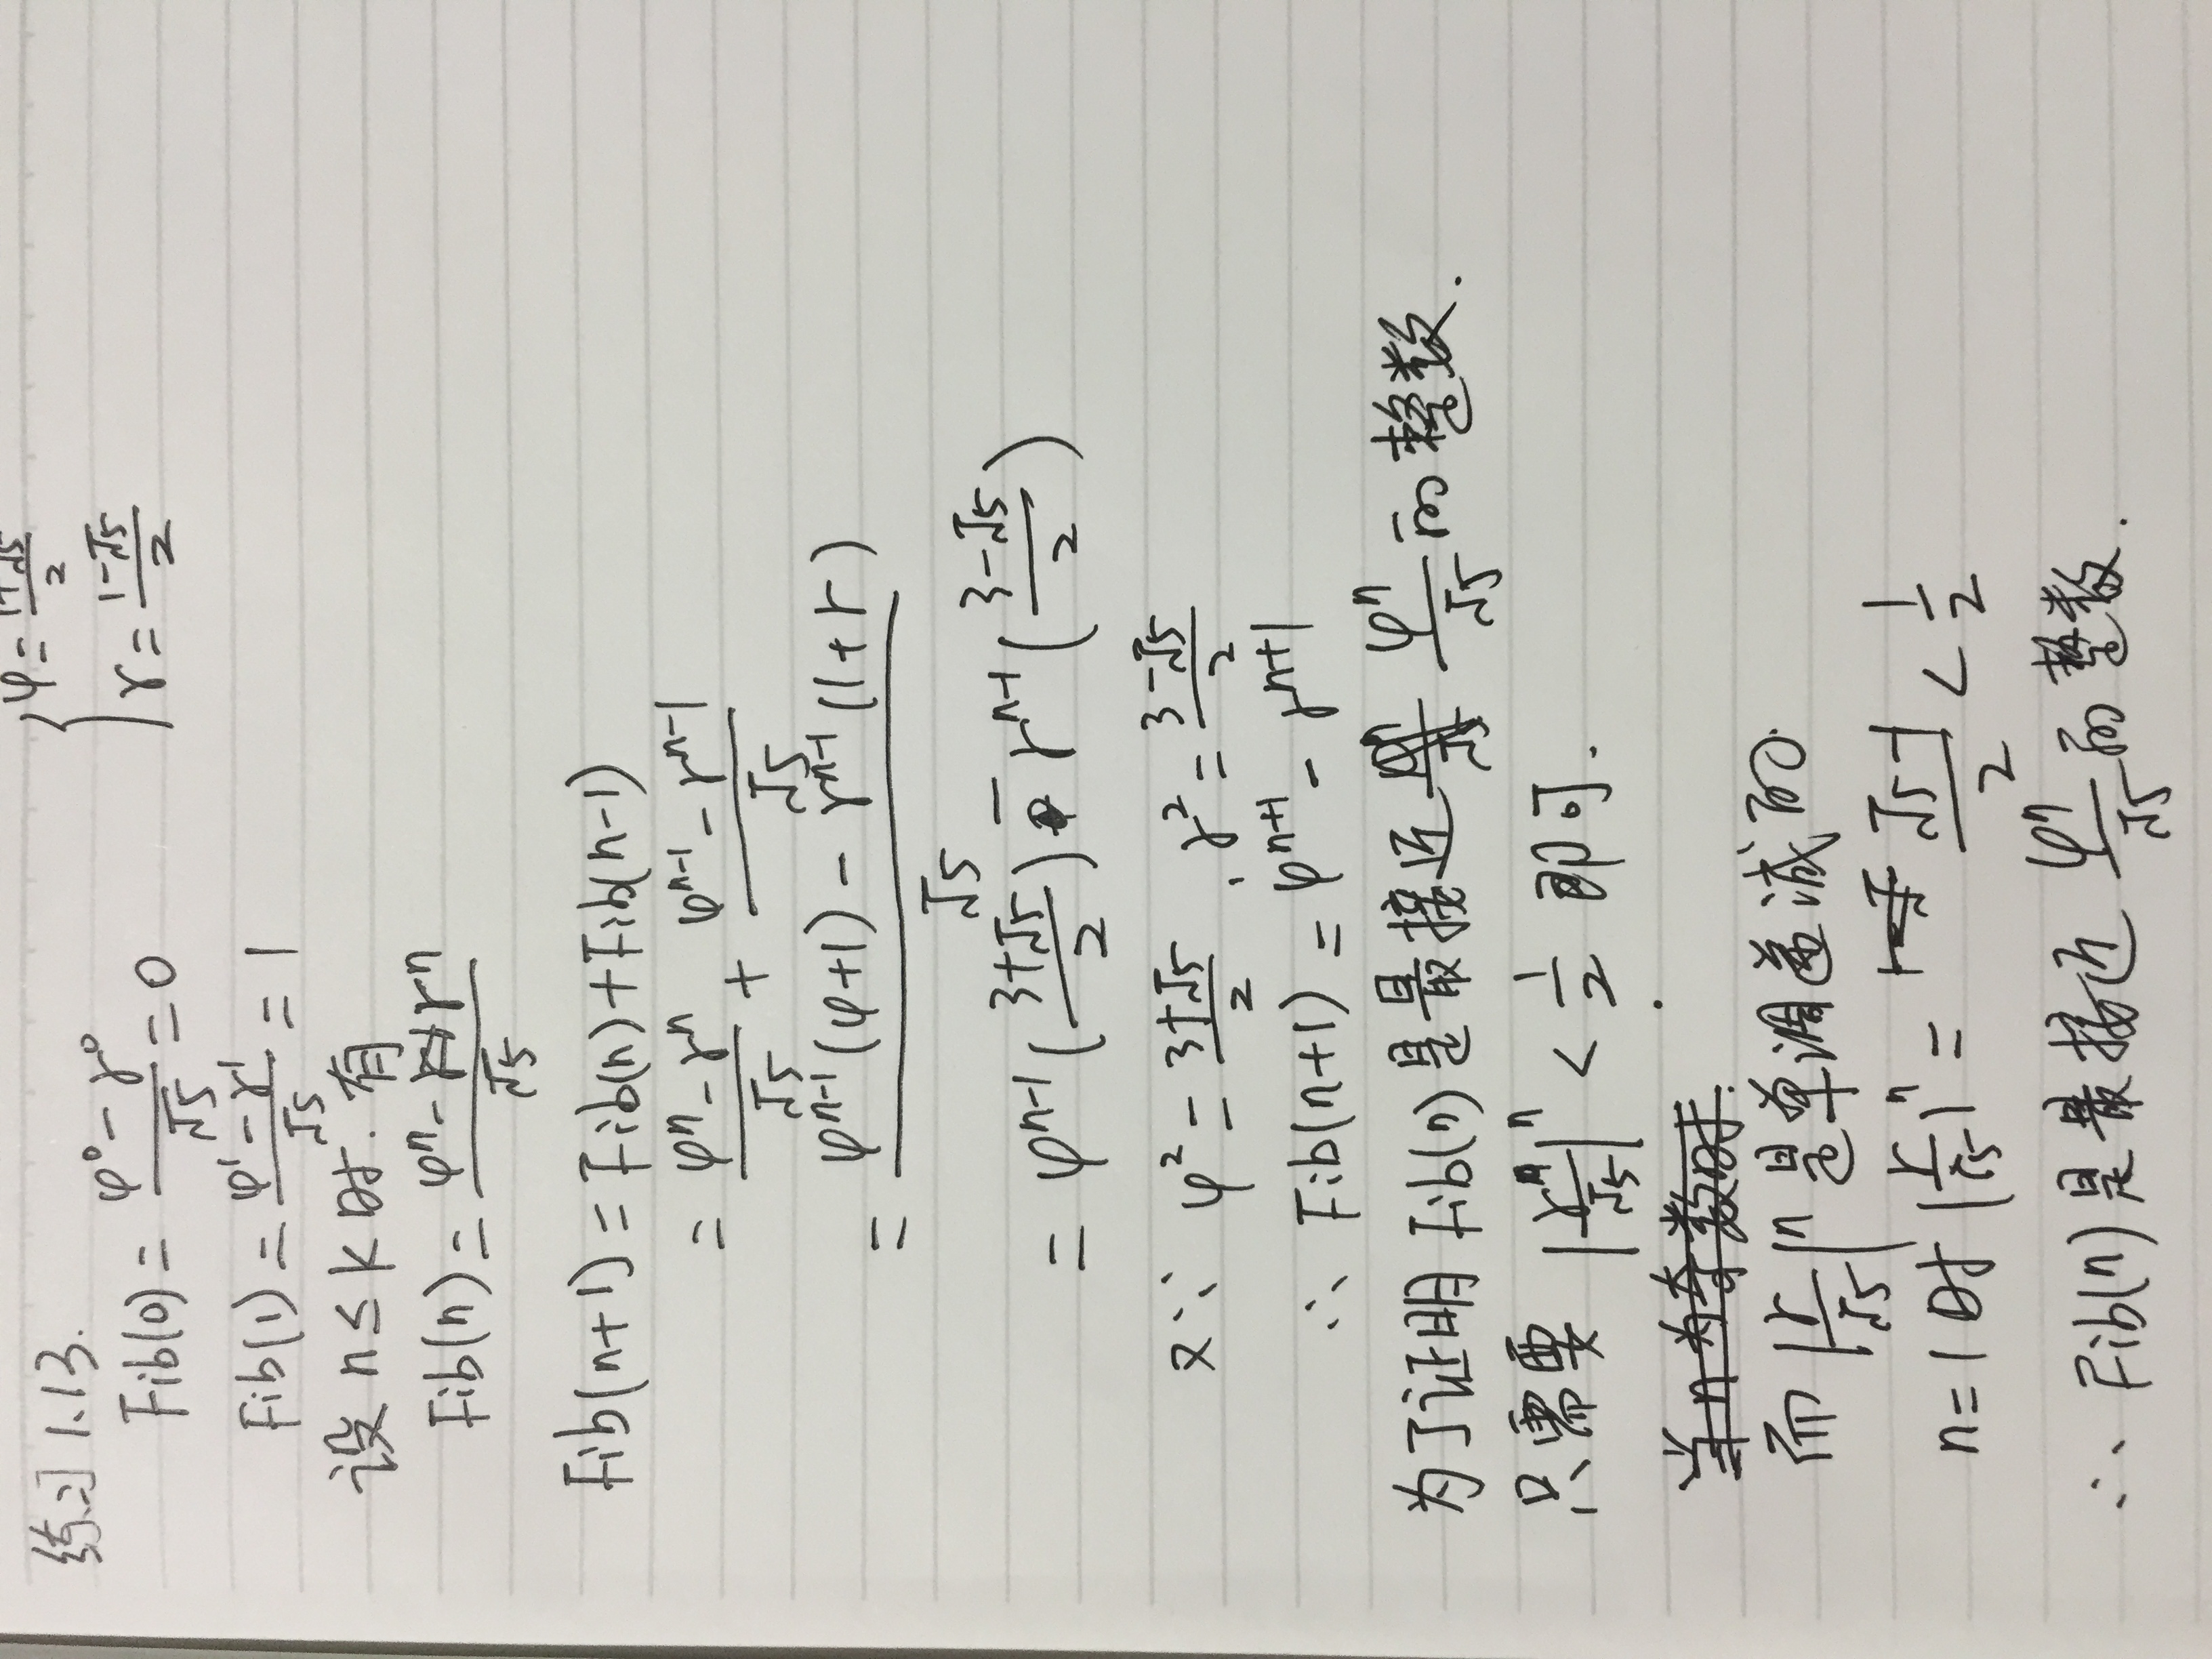 练习 1.13.
φ = (1+√5)/2
γ = (1-√5)/2
Fib(0) = (φ⁰ - γ⁰)/√5 = 0
Fib(1) = (φ¹ - γ¹)/√5 = 1
设 n ≤ k 时. 有
Fib(n) = (φⁿ - γⁿ)/√5
Fib(n+1) = Fib(n) + Fib(n-1)
= (φⁿ - γⁿ)/√5 + (φⁿ⁻¹ - γⁿ⁻¹)/√5
= (φⁿ⁻¹(φ+1) - γⁿ⁻¹(1+γ))/√5
= φⁿ⁻¹((3+√5)/2) - γⁿ⁻¹((3-√5)/2)
又∵ φ² = (3+√5)/2 , γ² = (3-√5)/2
∴ Fib(n+1) = φⁿ⁺¹ - γⁿ⁺¹
为了证明 Fib(n) 是最接近 φⁿ/√5 的整数.
只需要 |γ/√5|ⁿ < 1/2 即可.
当 n 为奇数时.
而 |γ/√5|ⁿ 是单调递减的.
n=1 时 |γ/√5|ⁿ = (√5-1)/2 < 1/2
∴ Fib(n) 是最接近 φⁿ/√5 的整数.